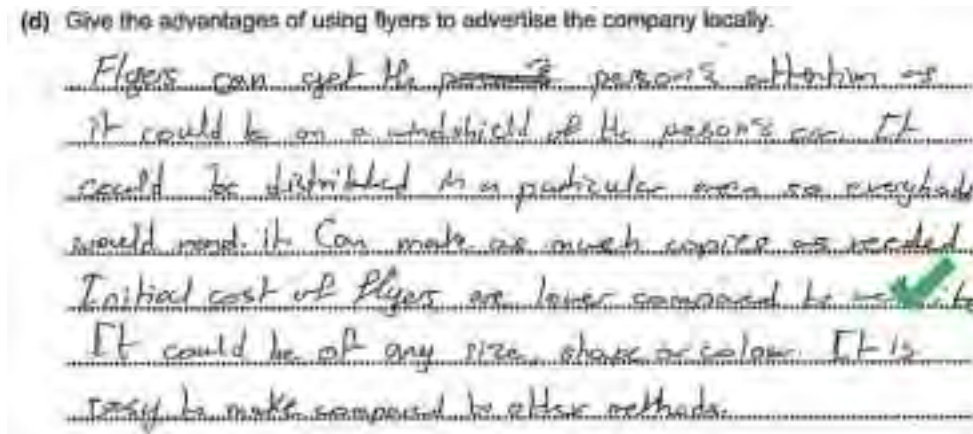 (d) Give the advantages of using flyers to advertise the company locally.
Flyers can get the person's attention as
it could be on a windshield of the person's car. It
could be distributed in a particular area so everybody
would read. it Can make as much copies as needed.
Initial cost of flyers are lower compared to
It could be of any size, shape or colour. It is
easy to make compared to other methods.